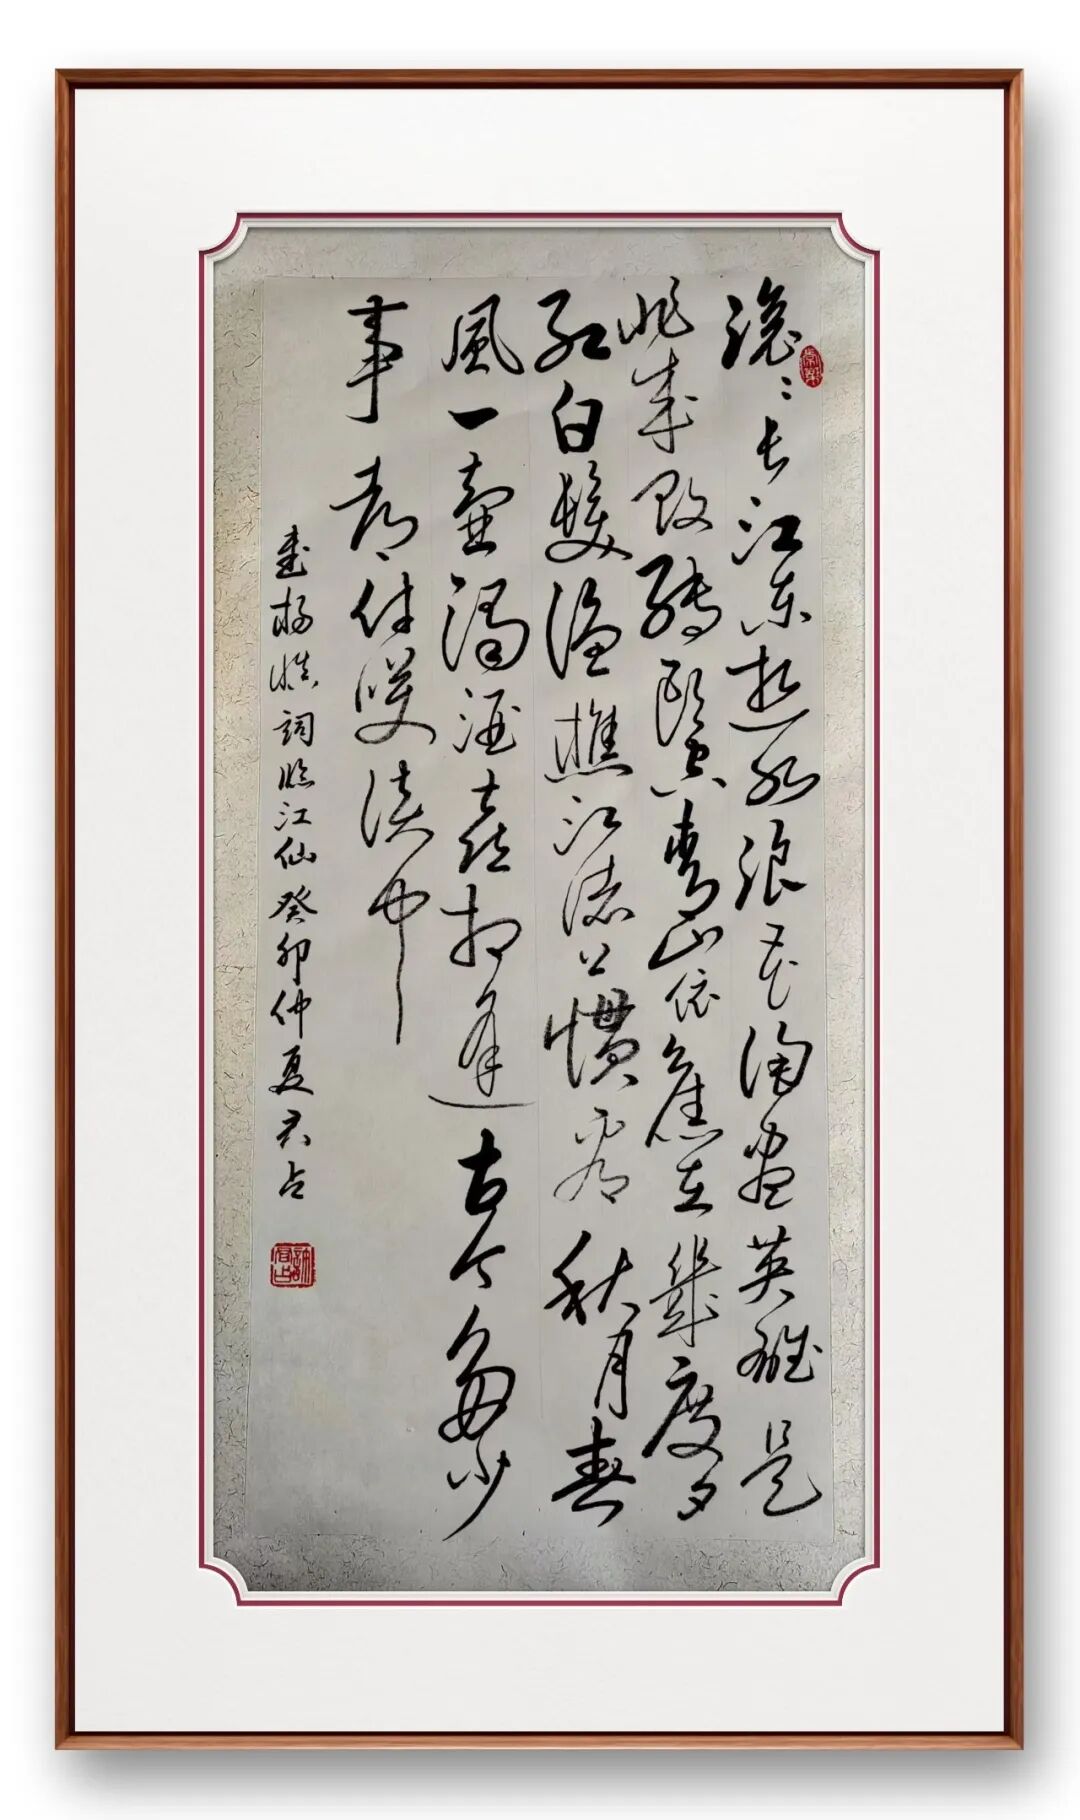 滾〻長江東逝水浪花淘盡英雄是
非成敗轉頭空青山依舊在幾度夕
紅白髮漁樵江渚上慣看秋月春
風一壺濁酒喜相逢古今多少
事都付笑談中
書楊慎詞臨江仙癸卯仲夏君占